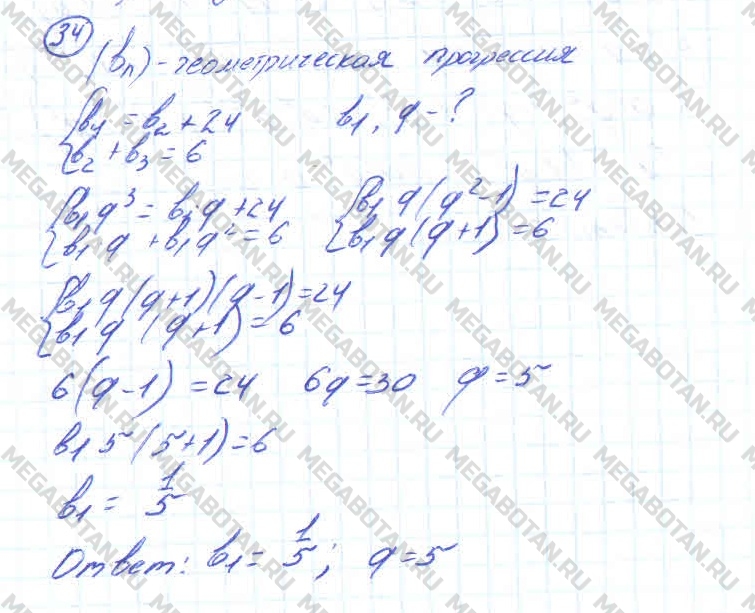 34
(bn) - геометрическая прогрессия
{b4 = b2 + 24
{b2 + b3 = 6
b1, q - ?
{b1 q³ = b1 q + 24
{b1 q + b1 q² = 6
{b1 q (q² - 1) = 24
{b1 q (q + 1) = 6
{b1 q (q + 1)(q - 1) = 24
{b1 q (q + 1) = 6
6(q - 1) = 24 6q = 30 q = 5
b1 5 (5 + 1) = 6
b1 = 1/5
Ответ: b1 = 1/5; q = 5
MEGABOTAN.RU